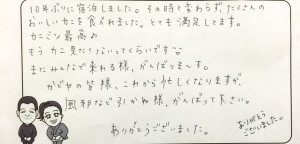 10年ぶりに宿泊しました。その時と変わらず、たくさんの
おいしいカニを食べれました。とても満足してます。
カニミソ最高♪
もうカニ見たくないってくらいです
またみんなで来れる様、がんばりまーす。
かどやの皆様、これから忙しくなりますが、
風邪など引かぬ様、がんばって下さい。
ありがとうございました。
ありがとう
ございました。